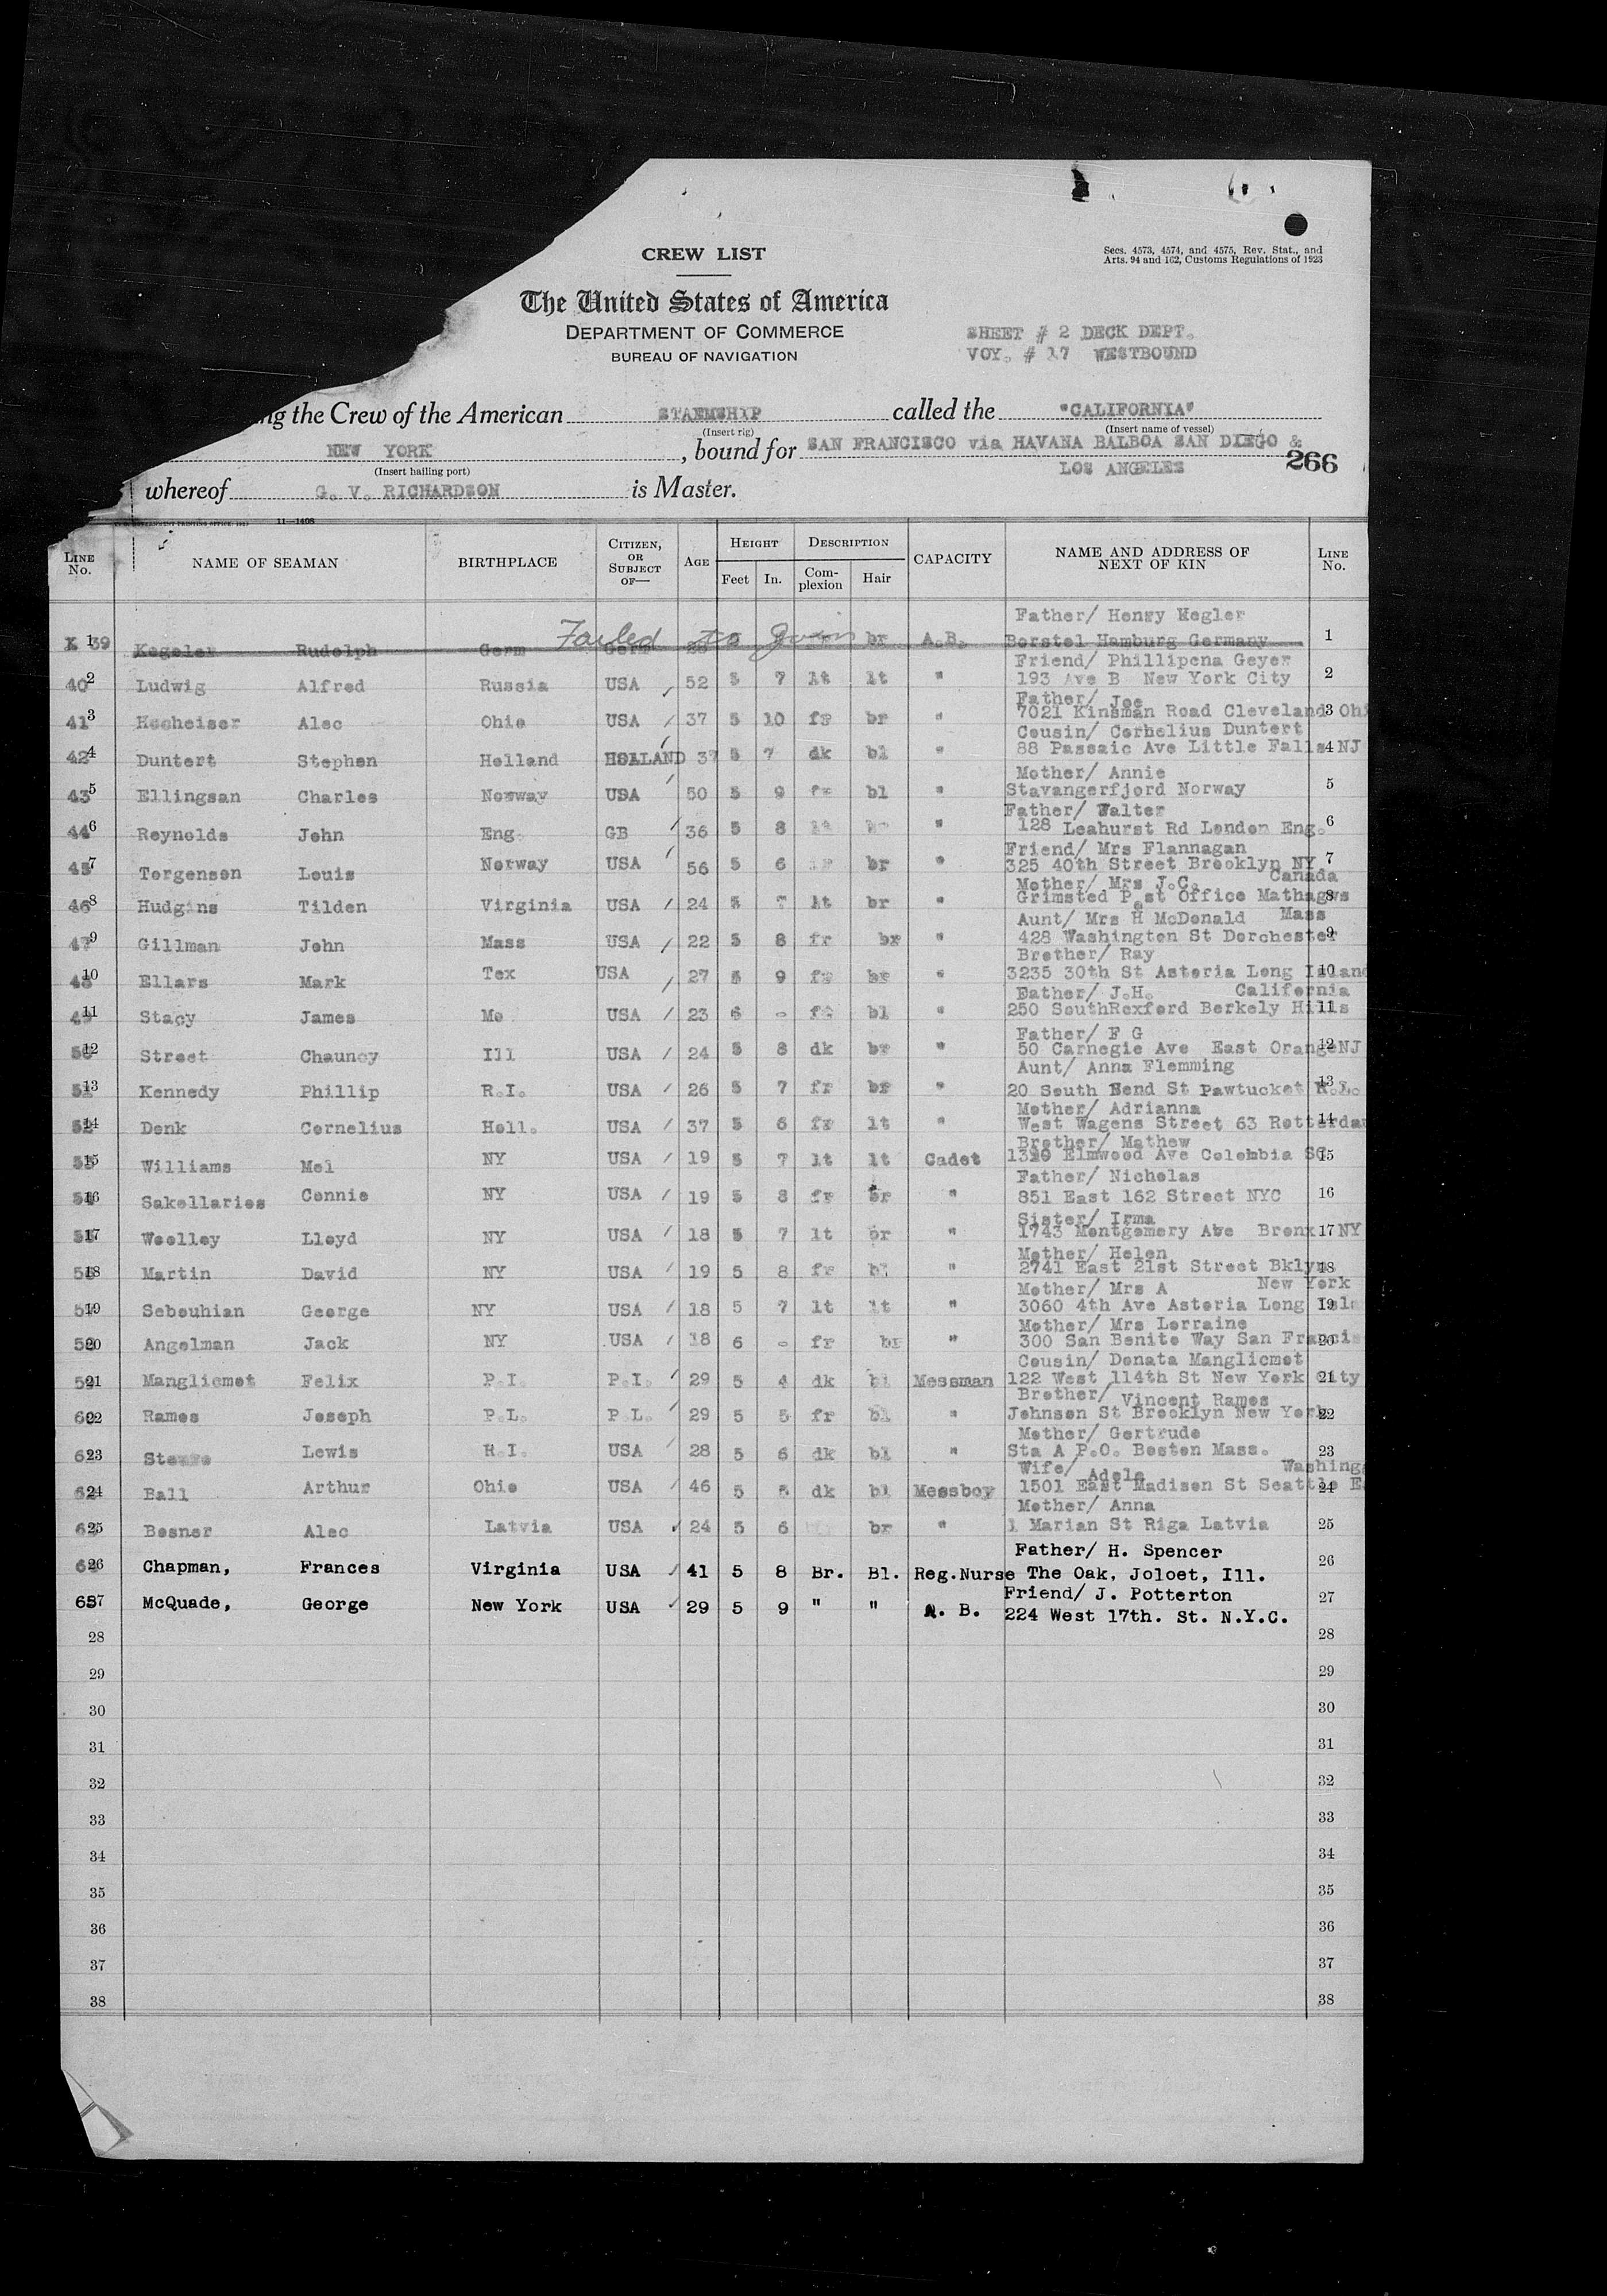 CREW LIST
Secs. 4573, 4574, and 4575, Rev. Stat., and
Arts. 94 and 162, Customs Regulations of 1923
The United States of America
DEPARTMENT OF COMMERCE
BUREAU OF NAVIGATION
SHEET # 2 DECK DEPT.
VOY. # 17 WESTBOUND
ng the Crew of the American STAEMSHIP called the "CALIFORNIA"
(Insert rig) (Insert name of vessel)
NEW YORK , bound for SAN FRANCISCO via HAVANA BALBOA SAN DIEGO &
(Insert hailing port) LOS ANGELES 266
whereof G. V. RICHARDSON is Master.
11—1408
LINE No. NAME OF SEAMAN BIRTHPLACE CITIZEN, OR SUBJECT OF— AGE HEIGHT Feet In. DESCRIPTION Complexion Hair CAPACITY NAME AND ADDRESS OF NEXT OF KIN LINE No.
Father/ Henry Kegler
X 39 1 Kegeler Rudolph Germ Failed to join br A.B. Borstel Hamburg Germany 1
Friend/ Phillipena Geyer
40 2 Ludwig Alfred Russia USA 52 5 7 lt lt " 193 Ave B New York City 2
Father/ Joe
41 3 Hecheiser Alec Ohio USA 37 5 10 fr br " 7021 Kinsman Road Cleveland Ohi 3
Cousin/ Cornelius Duntert
42 4 Duntert Stephen Holland HOLLAND 37 5 7 dk bl " 88 Passaic Ave Little Falls NJ 4
Mother/ Annie
43 5 Ellingsan Charles Norway USA 50 5 9 fr bl " Stavangerfjord Norway 5
Father/ Walter
44 6 Reynolds John Eng. GB 36 5 8 lt " 128 Leahurst Rd London Eng. 6
Friend/ Mrs Flannagan
45 7 Torgensen Louis Norway USA 56 5 6 br " 325 40th Street Brooklyn NY 7
Mother/ Mrs J.C. Canada
46 8 Hudgins Tilden Virginia USA 24 5 7 lt br " Grimsted Post Office Mathagws 8
Aunt/ Mrs H McDonald Mass
47 9 Gillman John Mass USA 22 5 8 fr br " 428 Washington St Dorchester 9
Brother/ Ray
48 10 Ellars Mark Tex USA 27 5 9 fr br " 3235 30th St Astoria Long Island 10
Father/ J.H. California
49 11 Stacy James Mo USA 23 6 - fr bl " 250 SouthRexford Berkely Hills 11
Father/ F G
50 12 Street Chauncy Ill USA 24 5 8 dk br " 50 Carnegie Ave East Orange NJ 12
Aunt/ Anna Flemming
51 13 Kennedy Phillip R.I. USA 26 5 7 fr br " 20 South Bend St Pawtucket R.I. 13
Mother/ Adrianna
52 14 Denk Cornelius Holl. USA 37 5 6 fr lt " West Wagens Street 63 Rotterdam 14
Brother/ Mathew
53 15 Williams Mel NY USA 19 5 7 lt lt Cadet Elmwood Ave Colembia SC 15
Father/ Nicholas
54 16 Sakellaries Connie NY USA 19 5 8 fr br " 851 East 162 Street NYC 16
Sister/ Irma
55 17 Woolley Lloyd NY USA 18 5 7 lt br " 1743 Montgomery Ave Bronx NY 17
Mother/ Helen
56 18 Martin David NY USA 19 5 8 fr bl " 2741 East 21st Street Bklyn 18
Mother/ Mrs A New York
57 19 Sebouhian George NY USA 18 5 7 lt lt " 3060 4th Ave Astoria Long Isla 19
Mother/ Mrs Lorraine
58 20 Angelman Jack NY USA 18 6 - fr br " 300 San Benito Way San Francis 20
Cousin/ Donata Manglicmot
59 21 Manglicmot Felix P.I. P.I. 29 5 4 dk bl Messman 122 West 114th St New York City 21
Brother/ Vincent Rames
60 22 Rames Joseph P.I. P.I. 29 5 5 fr bl " Johnson St Brooklyn New York 22
Mother/ Gertrude
61 23 Lewis R.I. USA 28 5 6 dk bl " Sta A P.O. Boston Mass. 23
Wife/ Adele Washing
62 24 Ball Arthur Ohio USA 46 5 5 dk bl Messboy 1501 East Madison St Seattle 24
Mother/ Anna
63 25 Besner Alec Latvia USA 24 5 6 br " 1 Marian St Riga Latvia 25
Father/ H. Spencer
64 26 Chapman, Frances Virginia USA 41 5 8 Br. Bl. Reg.Nurse The Oak, Joloet, Ill. 26
Friend/ J. Potterton
65 27 McQuade, George New York USA 29 5 9 " " A. B. 224 West 17th. St. N.Y.C. 27
28 28
29 29
30 30
31 31
32 32
33 33
34 34
35 35
36 36
37 37
38 38